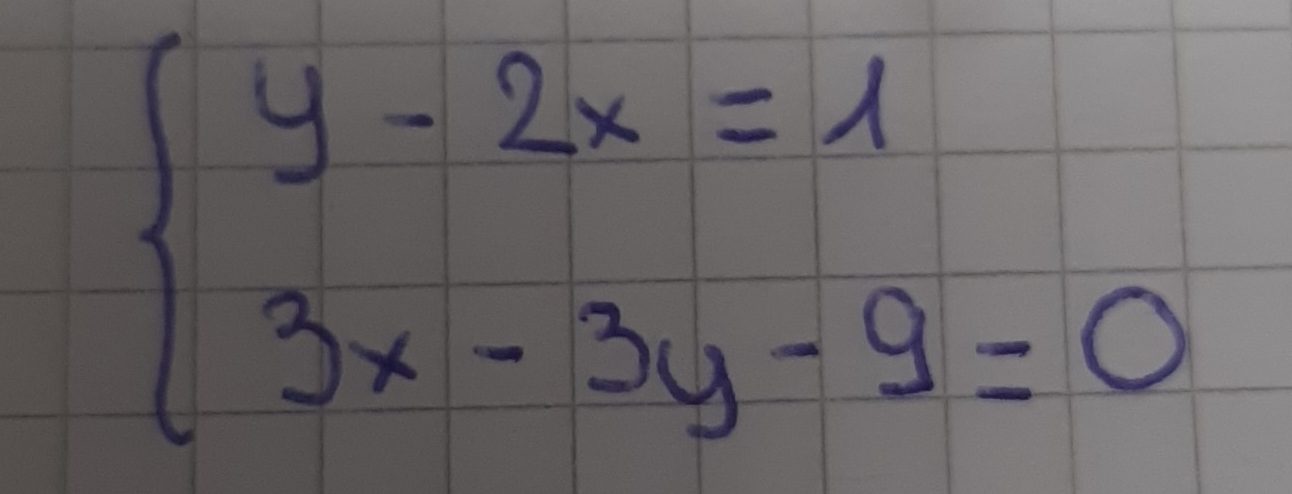 y - 2x = 1
3x - 3y - 9 = 0